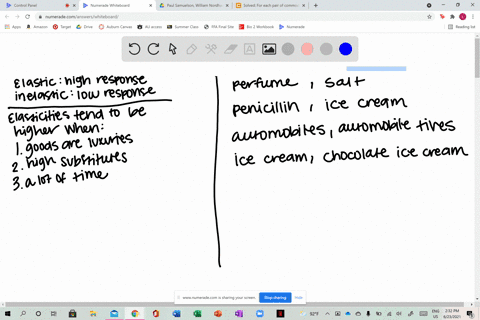 Control Panel
Numerade Whiteboard
Paul Samuelson, William Nordh
Solved: For each pair of commo
numerade.com/answers/whiteboard/
Apps
Amazon
Target
Drive
Auburn Canvas
AU access
Star Student Chart
PTA Final Site
Bio 2 Workbook
Numerade
Reading list
Elastic: high response
inelastic: low response
Elasticities tend to be
higher when:
1. goods are luxuries
2. high substitutes
3. a lot of time
perfume, salt
penicillin, ice cream
automobites, automobile tires
ice cream, chocolate ice cream
www.numerade.com is sharing your screen.
Stop sharing
Hide
82°F
ENG
US
3:32 PM
6/23/2021